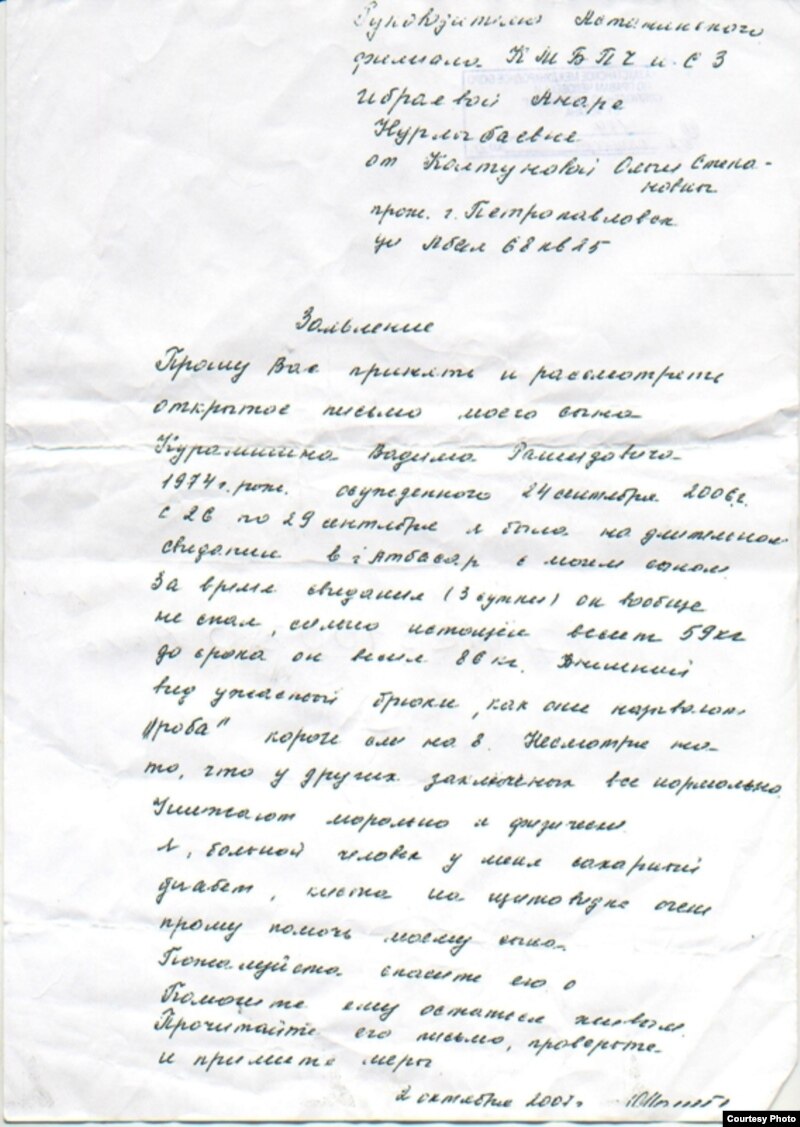 Руководителю Астанинского
филиала КМБПЧ и СЗ
Ибраевой Анаре
Нурлыбаевне
от Колтуновой Ольги Степа-
новны
прож. г. Петропавловск
ул Абая 68 кв 25
Заявление
Прошу Вас принять и рассмотреть
открытое письмо моего сына
Курамшина Вадима Рашидовича
1974г. рож. осужденного 24 сентября 2006г.
с 26 по 29 сентября я была на длительном
свидании в г Атбасар с моим сыном
За время свидания (3 сутки) он вообще
не спал, сильно истощён весит 59 кг
до срока он весил 86 кг. Внешний
вид ужасный брюки, как они называют
"роба" короче см на 8. Несмотря на
то, что у других заключеных все нормально
Унижают морально и физически
Я, больной человек у меня сахарный
диабет, киста на щитовидке очень
прошу помочь моему сыну.
Пожалуйста спасите его
Помогите ему остаться живым.
Прочитайте его письмо, проверьте
и примите меры
2 октября 2007г
Courtesy Photo